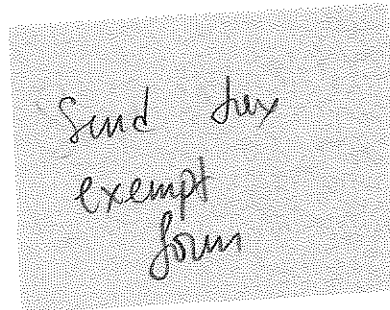 Send tax
exempt
form